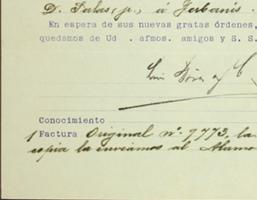 D. Salas, jr, á Jabanís.
En espera de sus nuevas gratas órdenes,
quedamos de Ud . afmos. amigos y S. S.
y C
Conocimiento
1 Factura Original nº. 9773, la
copia la enviamos al Alamo